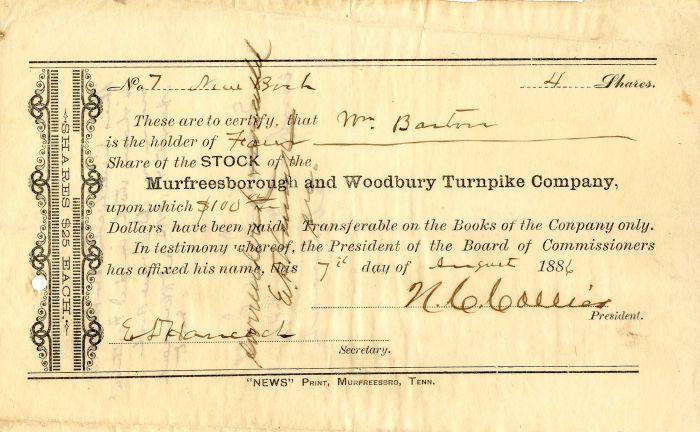 No 7 New Book 4 Shares.
These are to certify, that Wm. Barton
is the holder of Four
Share of the STOCK of the
Murfreesborough and Woodbury Turnpike Company,
upon which $100
Dollars have been paid. Transferable on the Books of the Conpany only.
In testimony whereof, the President of the Board of Commissioners
has affixed his name, this 7th day of August 1886
N. C. Collier
President.
E D Hancock
Secretary.
"NEWS" PRINT, MURFREESBRO, TENN.
SHARES $25 EACH.